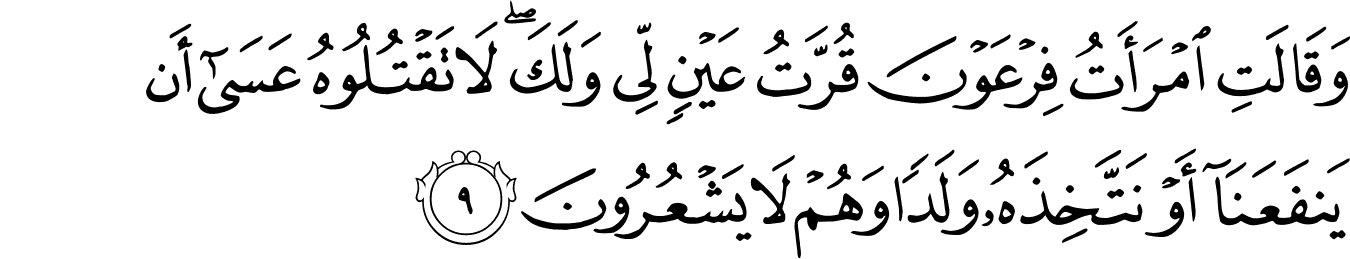 وَقَالَتِ ٱمْرَأَتُ فِرْعَوْنَ قُرَّتُ عَيْنٍ لِّى وَلَكَ ۖ لَا تَقْتُلُوهُ عَسَىٰٓ أَن
يَنفَعَنَآ أَوْ نَتَّخِذَهُۥ وَلَدًا وَهُمْ لَا يَشْعُرُونَ ٩